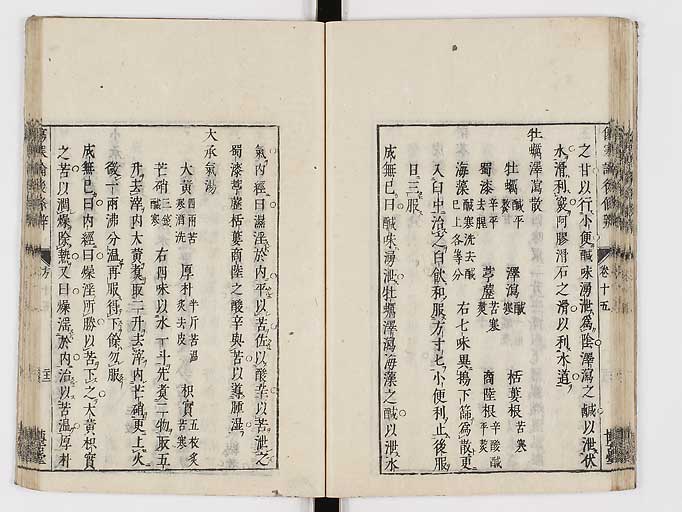 之甘以行小便鹹味湧泄爲陰澤瀉之鹹以泄伏
水滑利竅阿膠滑石之滑以利水道
牡蠣澤瀉散
牡蠣鹹平 澤瀉鹹寒 栝蔞根苦寒
蜀漆辛平去腥 葶藶苦寒熬 商陸根辛酸鹹平熬
海藻鹹寒洗去鹹已上各等分 右七味異搗下篩爲散更
入臼中治之白飲和服方寸七小便利止後服
日三服
成無已曰鹹味湧泄牡蠣澤瀉海藻之鹹以泄水
氣內經曰濕淫於內平以苦佐以酸辛以苦泄之
蜀漆葶藶栝蔞商陸之酸辛與苦以導腫濕
大承氣湯
大黃四兩苦寒酒洗 厚朴半斤苦溫炙去皮 枳實五枚炙苦寒
芒硝三合鹹寒 右四味以水一斗先煮二物取五
升去滓內大黃煮取二升去滓內芒硝更上火
微一兩沸分溫再服得下餘勿服
成無已曰內經曰燥淫所勝以苦下之大黃枳實
之苦以潤燥除熱又曰燥淫於內治以苦溫厚朴
卷十五
方